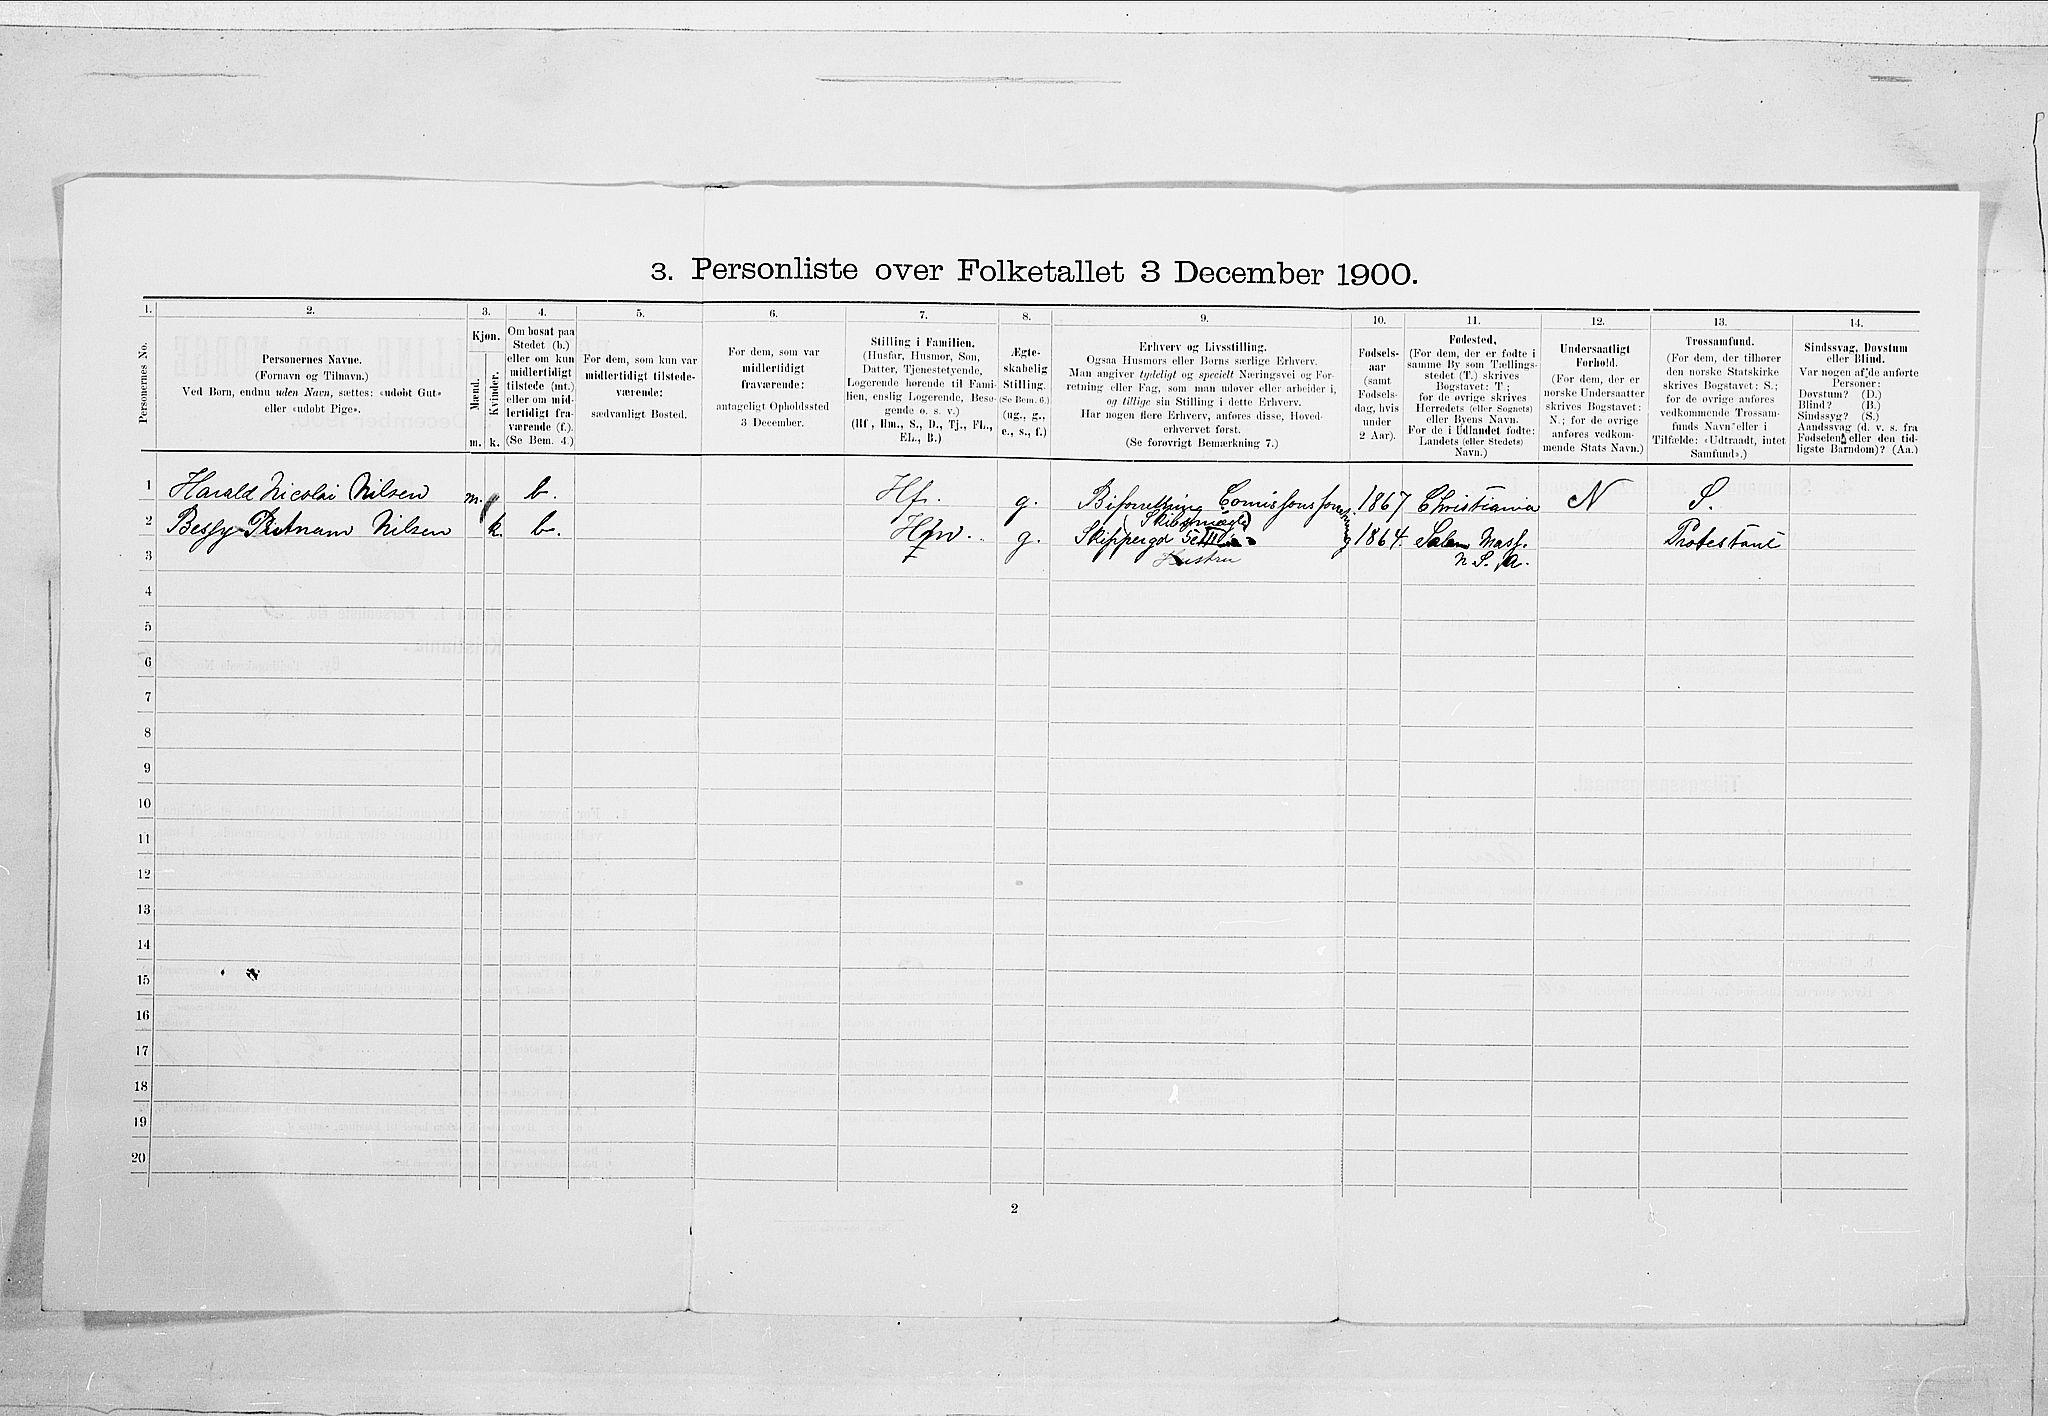 3. Personliste over Folketallet 3 December 1900.
1.
2.
3.
4.
5.
6.
7.
8.
9.
10.
11.
12.
13.
14.
Personernes No.
Personernes Navne.
(Fornavn og Tilnavn.)
Ved Børn, endnu uden Navn, sættes: «udøbt Gut»
eller «udøbt Pige».
Kjøn.
Mænd.
Kvinder.
m.
k.
Om bosat paa
Stedet (b.)
eller om kun
midlertidigt
tilstede (mt.)
eller om mid-
lertidigt fra-
værende (f.).
(Se Bem. 4.)
For dem, som kun var
midlertidigt tilstede-
værende:
sædvanligt Bosted.
For dem, som var
midlertidigt
fraværende:
antageligt Opholdssted
3 December.
Stilling i Familien.
(Husfar, Husmor, Søn,
Datter, Tjenestetyende,
Logerende hørende til Fami-
lien, enslig Logerende, Besø-
gende o. s. v.)
(Hf., Hm., S., D., Tj., FL.,
EL., B.)
Ægte-
skabelig
Stilling.
(Se Bem. 6.)
(ug., g.,
e., s., f.)
Erhverv og Livsstilling.
Ogsaa Husmors eller Børns særlige Erhverv.
Man angiver tydeligt og specielt Næringsvei og For-
retning eller Fag, som man udøver eller arbeider i,
og tillige sin Stilling i dette Erhverv.
Har nogen flere Erhverv, anføres disse, Hoved-
erhvervet først.
(Se forøvrigt Bemærkning 7.)
Fødsels-
aar
(samt
Fødsels-
dag, hvis
under
2 Aar).
Fødested,
(For dem, der er fødte i
samme By som Tællings-
stedet (T.) skrives
Bogstavet: T;
for de øvrige skrives
Herredets (eller Sognets)
eller Byens Navn.
For de i Udlandet fødte:
Landets (eller Stedets)
Navn.)
Undersaatligt
Forhold.
(For dem, der er
norske Undersaatter
skrives Bogstavet:
N.; for de øvrige
anføres vedkom-
mende Stats Navn.)
Trossamfund.
(For dem, der tilhører
den norske Statskirke
skrives Bogstavet: S.;
for de øvrige anføres
vedkommende Trossam-
funds Navn eller i
Tilfælde: «Udtraadt, intet
Samfund».)
Sindssvag, Døvstum
eller Blind.
Var nogen af de anførte
Personer:
Døvstum? (D.)
Blind? (B.)
Sindssyg? (S.)
Aandssvag (d. v. s. fra
Fødselen eller den tid-
ligste Barndom)? (Aa.)
1 Harald Nicolai Nilsen m. b. Hf. g. 1867 Christiania N S.
2 Nilsen k. b. Hm. g. 1864 Salem Mass. Protestant
Hustru
3
4
5
6
7
8
9
10
11
12
13
14
15
16
17
18
19
20
2